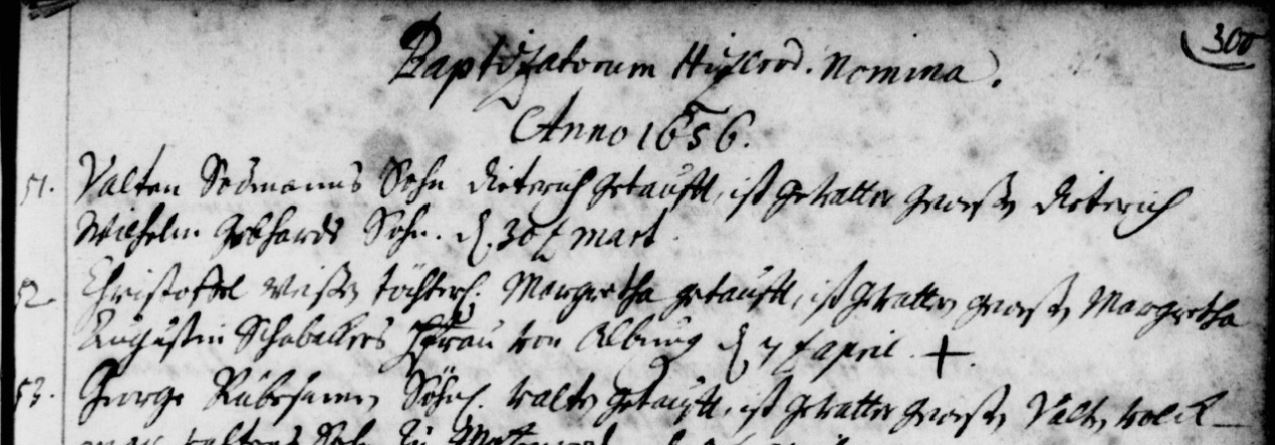 300
Baptizatorum Hitzerod. Nomina.
Anno 1656.
51. Valten Sodmanns Sohn Dieterich getaufft, ist gevatter gewesen Dieterich
Wilhelm Gebhards Sohn. d. 30 Mart.
52. Christoffel töchterl. Margretha getaufft, ist gevatter gewesen Margretha
Augustin Schabackers fraw von Albung d. 7 April. +.
53. George Söhnl. Valten getaufft, ist gevatter gewesen Valten Volck-
Sohn zu